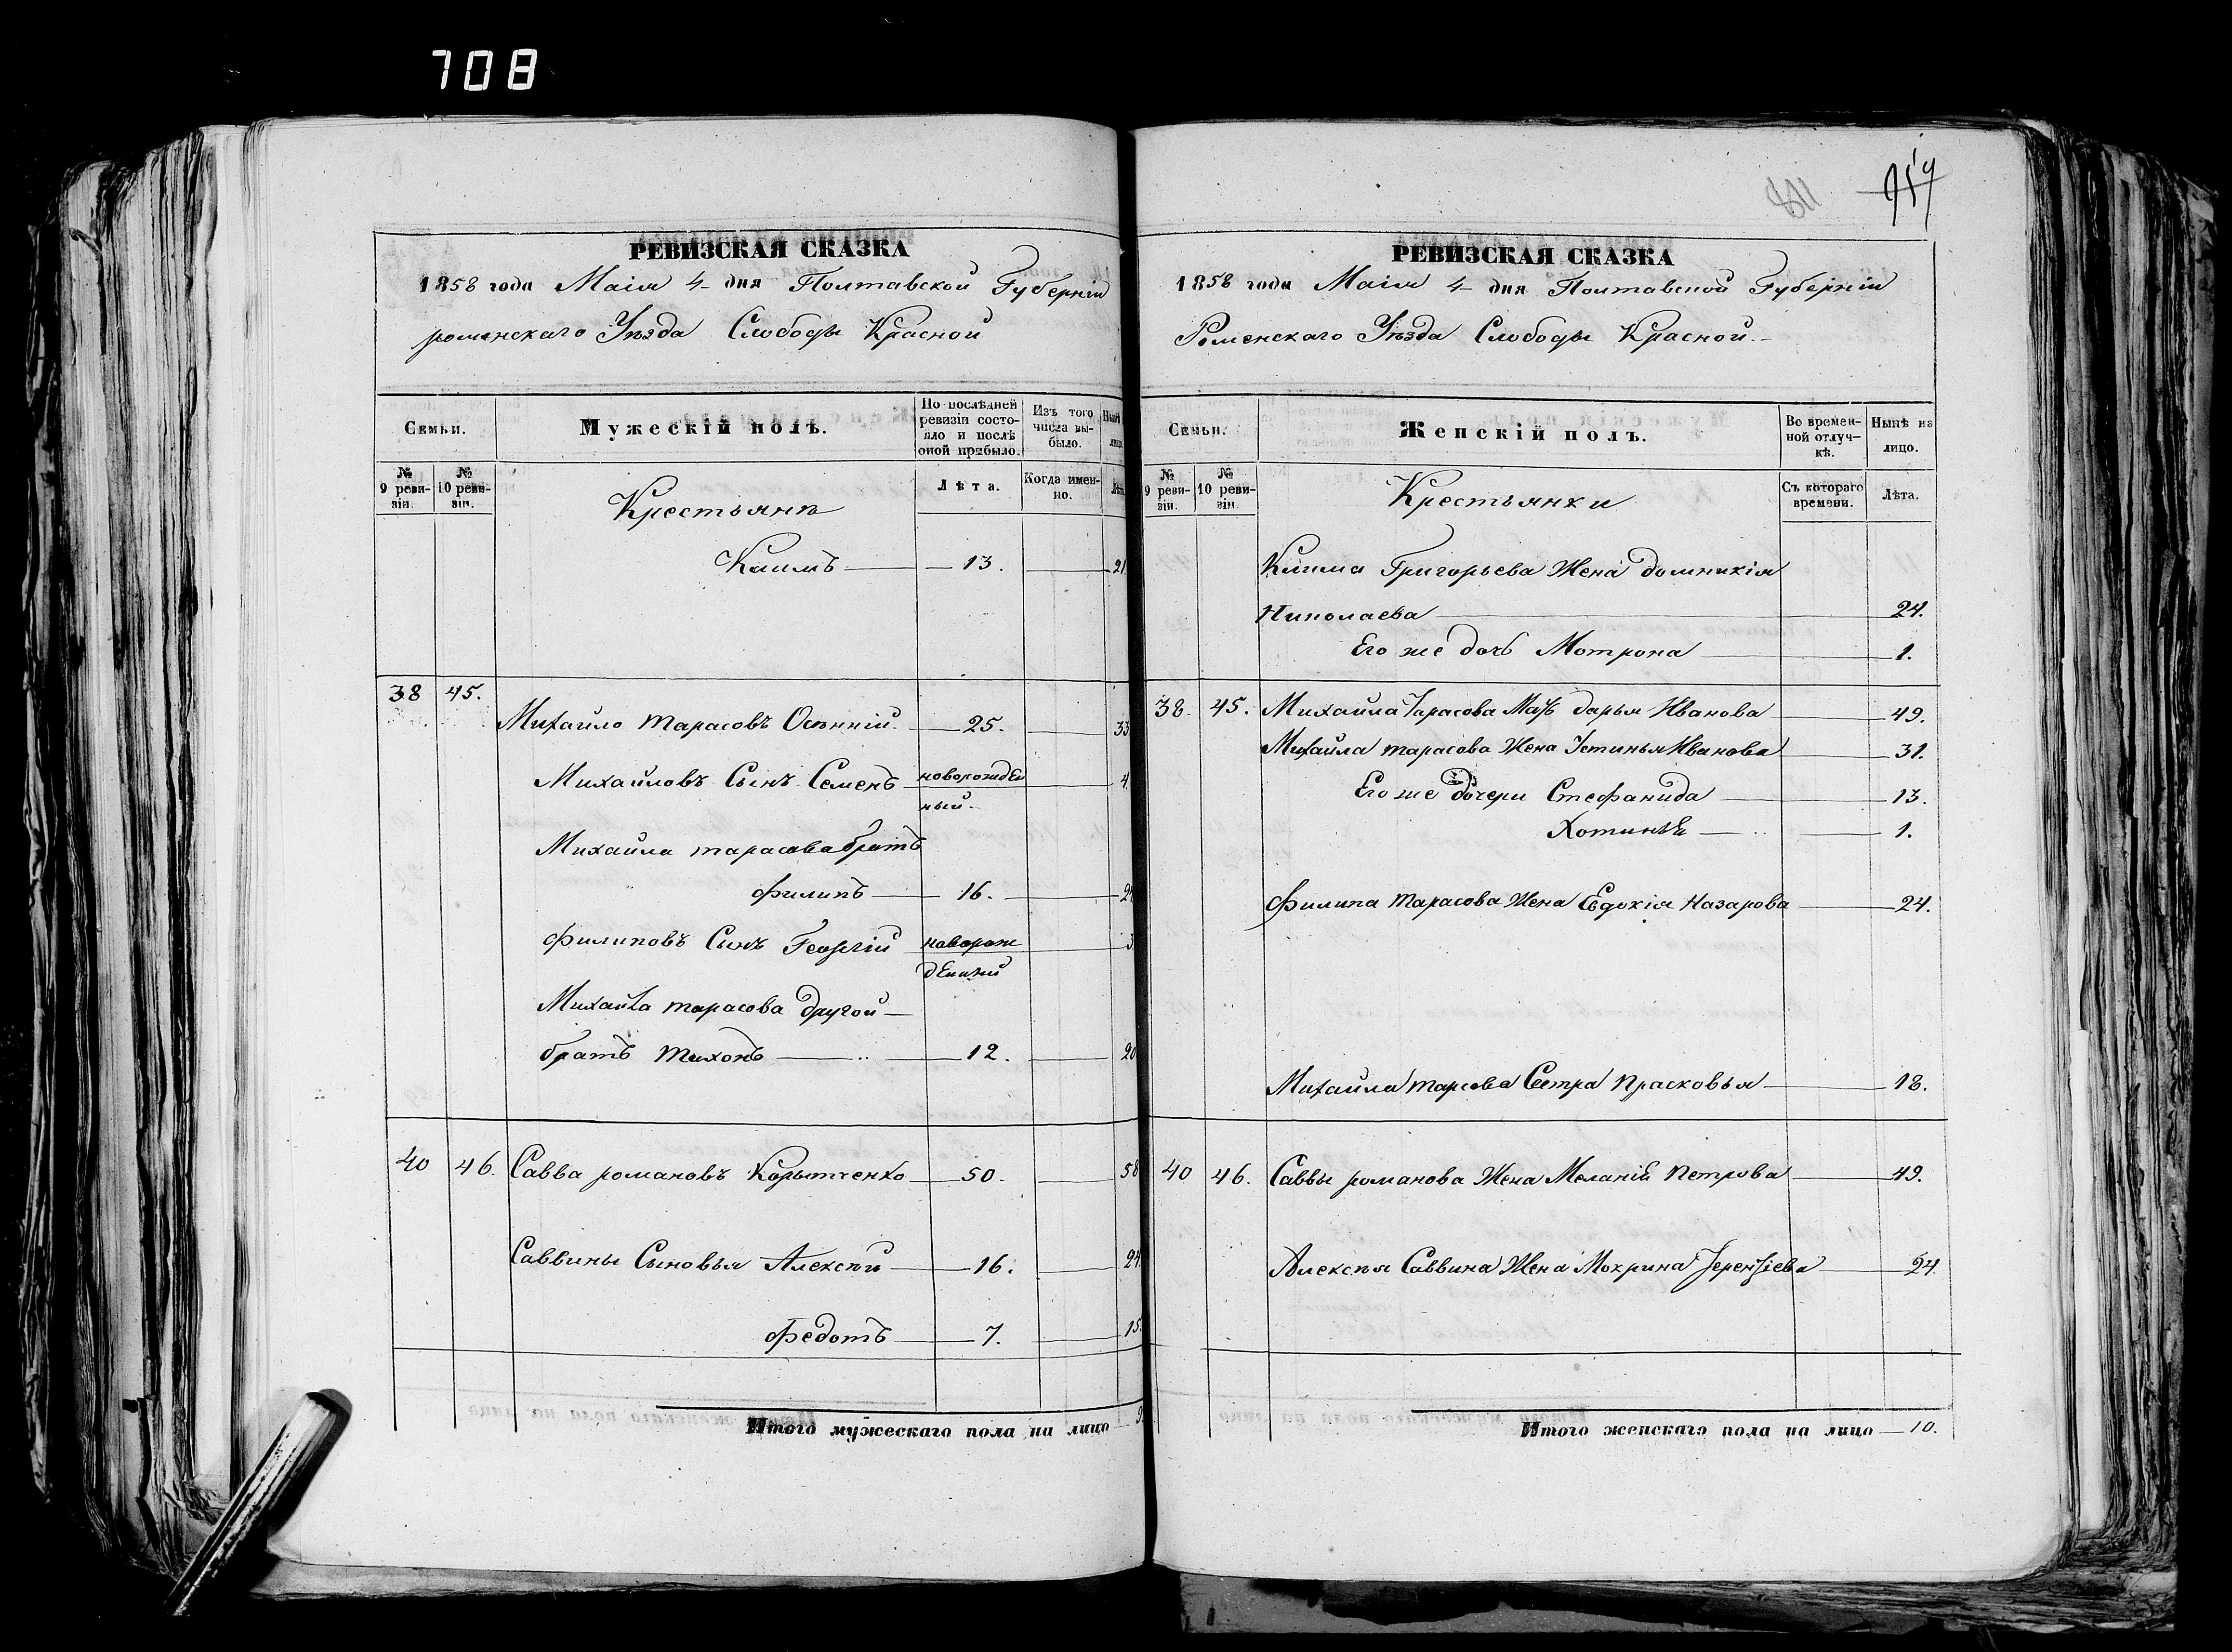 708
РЕВИЗСКАЯ СКАЗКА
1858 года Маія 4 дня Полтавской Губерніи
роменскаго Уѣзда Слободы Красной
Семьи.
Мужескій полъ.
По послѣдней ревизіи состояло и послѣ оной прибыло.
Изъ того числа выбыло.
№ 9 ревизіи.
№ 10 ревизіи.
Крестьяне
Лѣта.
Когда именно.
Климъ 13. 21.
38 45.
Михайло тарасовъ Осѣнній 25. 33
Михайловъ Сынъ Семенъ новорожден 4.
ный.
Михайла тарасова братъ
филипъ 16. 24
филиповъ Сынъ Георгій наворож 3
денный
Михайла тарасова другой
братъ тихонъ 12. 20
40 46. Савва романовъ Корытченко 50. 58
Саввины Сыновья Алексѣй 16. 24
федотъ 7. 15.
Итого мужескаго пола на лицо 9.
959
811
РЕВИЗСКАЯ СКАЗКА
1858 года Маія 4 дня Полтавской Губерніи
Роменскаго Уѣзда Слободы Красной
Семьи.
Женскій полъ.
Во временной отлучкѣ.
Нынѣ на лицо.
№ 9 ревизіи.
№ 10 ревизіи.
Крестьянки
Съ котораго времени.
Лѣта.
Клима Григорьева Жена домникія
Николаева 24.
Его же дочь Мотрона 1.
38. 45. Михайла Тарасова Мать дарья Иванова 49.
Михайла тарасова Жена Устинья Иванова 31.
Его же дочери Стефанида 13.
Хотинья 1.
филипа тарасова Жена Евдокія Назарова 24.
Михайла тарсова Сестра прасковья 18.
40 46. Саввы романова Жена Меланія петрова 49.
Алексѣя Саввина Жена Мокрина Терентіева 24
Итого женскаго пола на лицо 10.